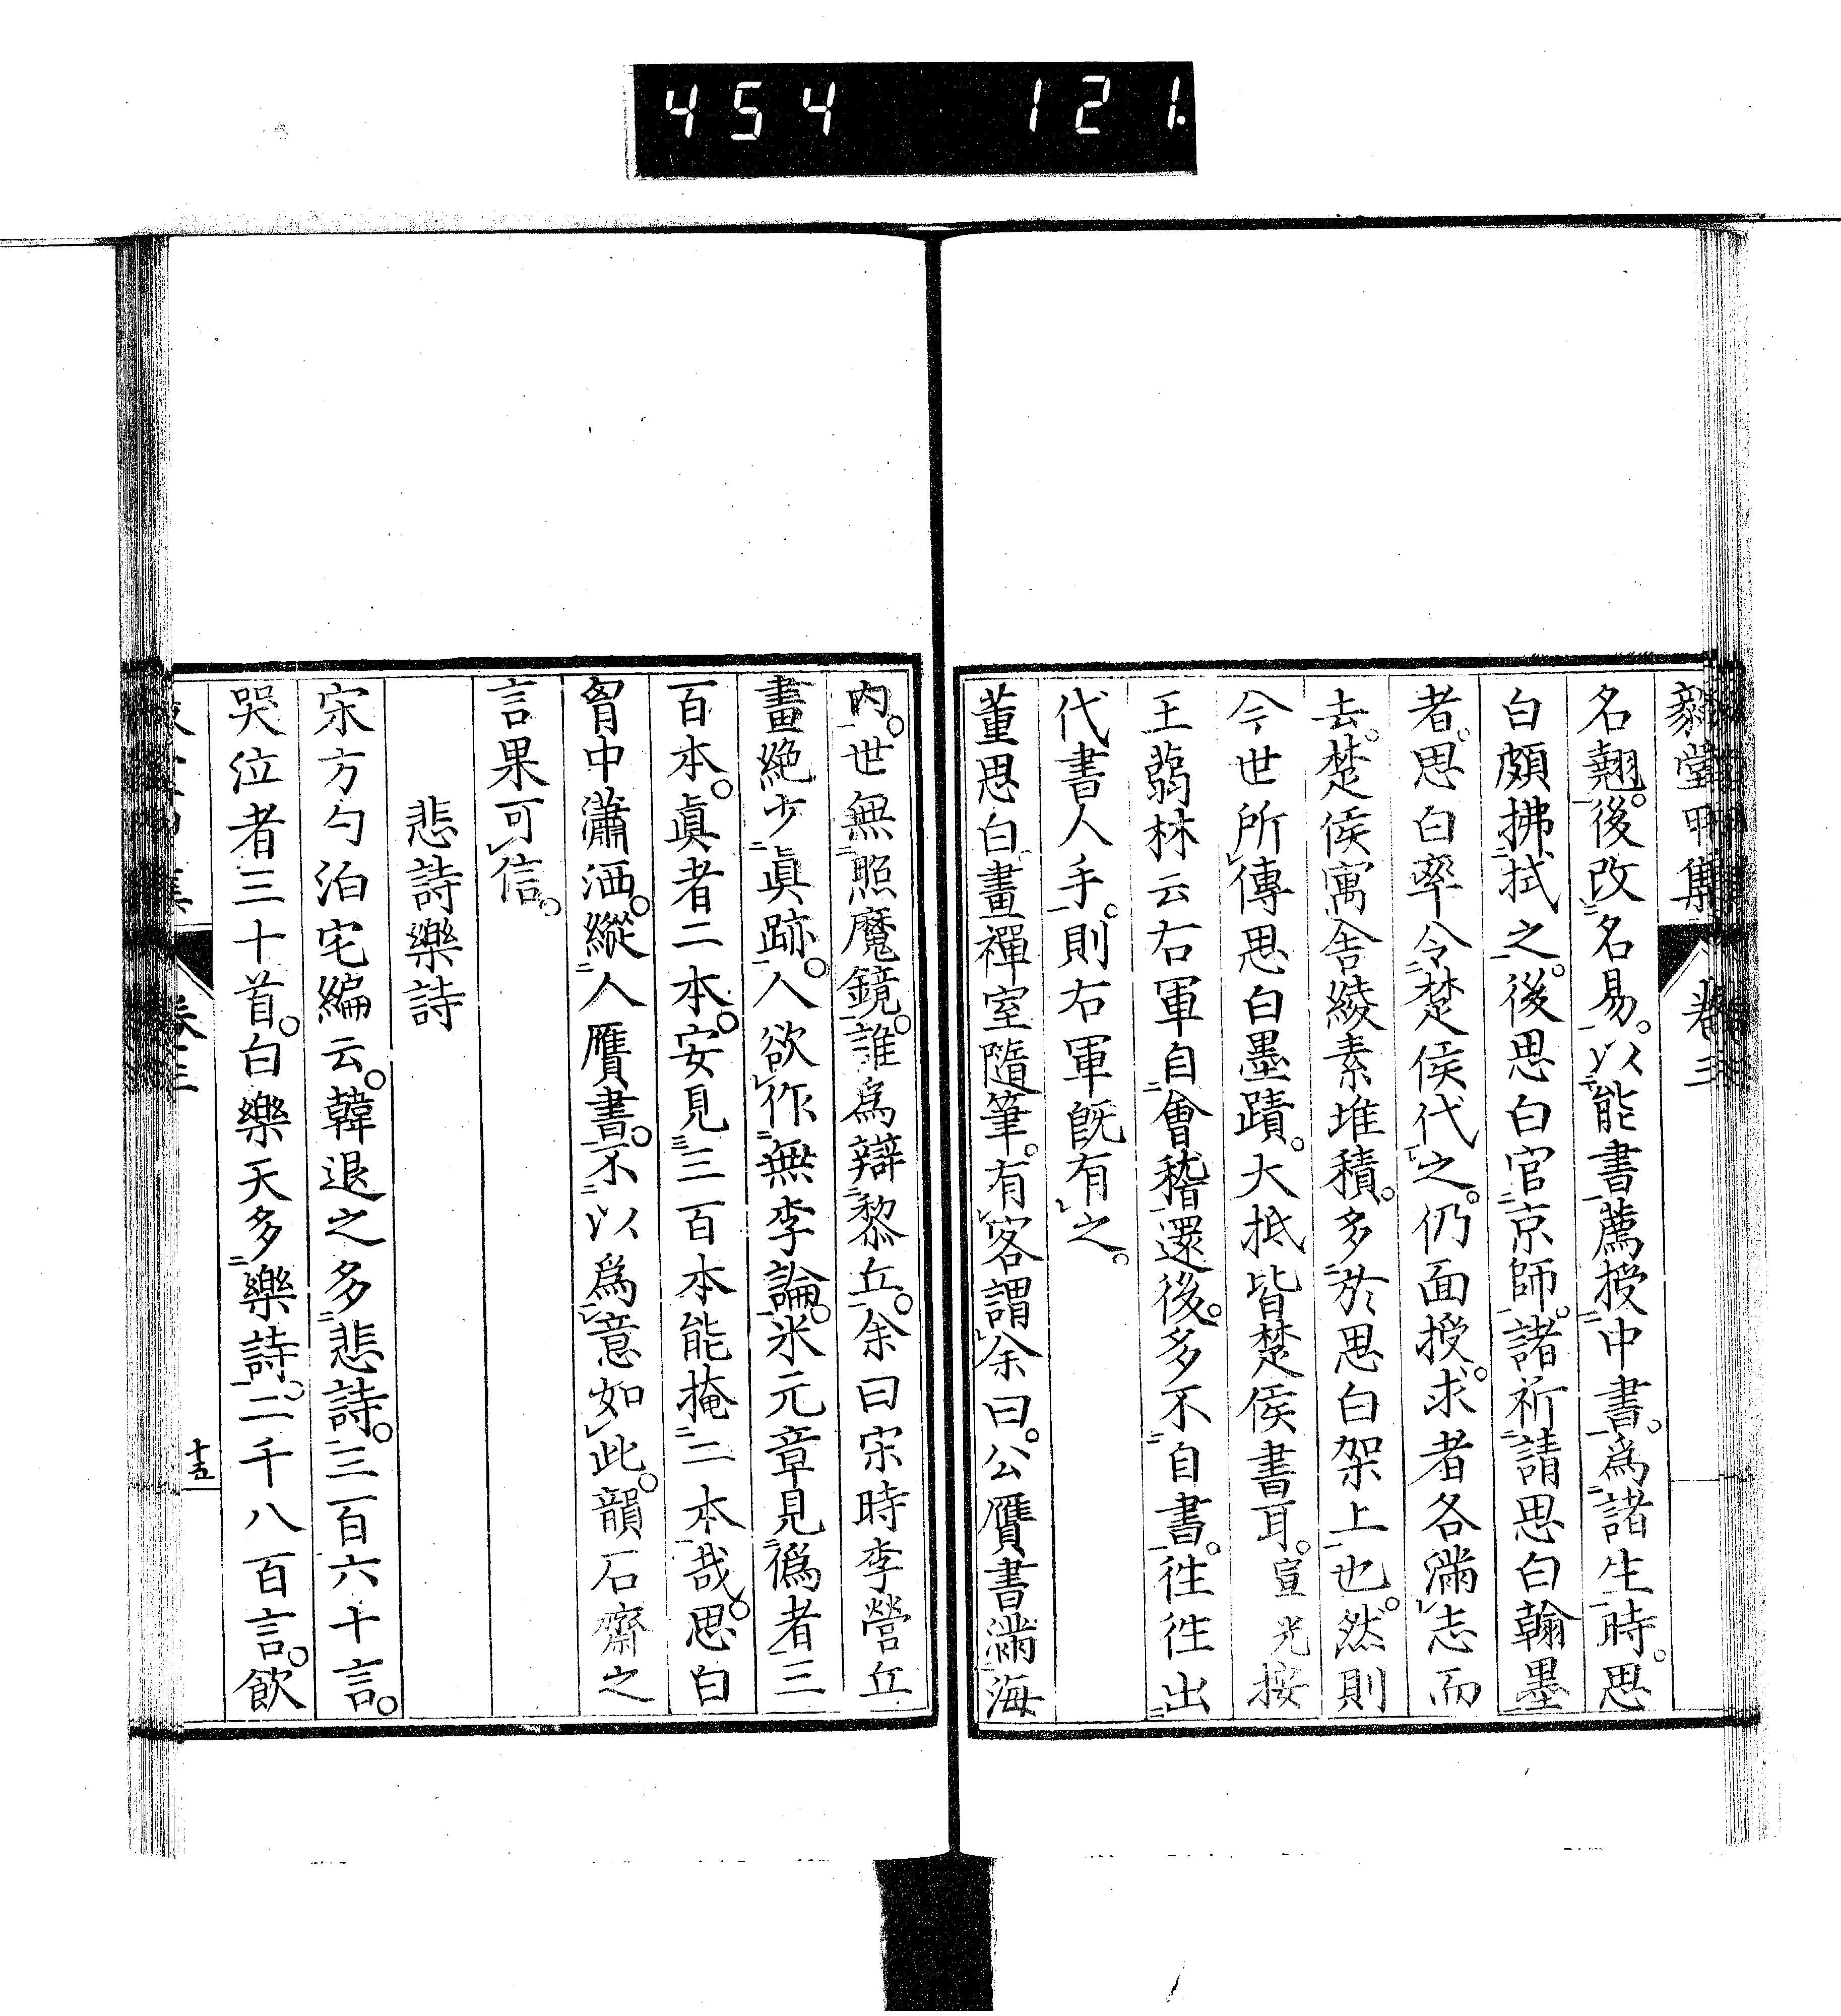 454 121.
毅堂甲集 卷三
名翹。後改名易。以能書薦授中書。爲諸生時。思
白頗拂拭之。後思白官京師。諸祈請思白翰墨
者。思白率令楚侯代之。仍面授。求者各滿志而
去。楚侯寓舍綾素堆積。多於思白架上也。然則
今世所傳思白墨蹟。大抵皆楚侯書耳。宣光按
王蒻林云右軍自會稽還後。多不自書。徃徃出
代書人手。則右軍旣有之。
董思白畫禪室隨筆。有客謂余曰。公贋書滿海
内。世無照魔鏡。誰爲辯黎丘。余曰宋時李營丘
畫絶少眞跡。人欲作無李論。米元章見僞者三
百本。眞者二本。安見三百本能掩二本哉。思白
胷中瀟洒。縱人贋書。不以爲意如此。韻石齋之
言果可信。
悲詩樂詩
宋方勺泊宅編云。韓退之多悲詩。三百六十言。
哭位者三十首。白樂天多樂詩。二千八百言。飮
卷三
十五